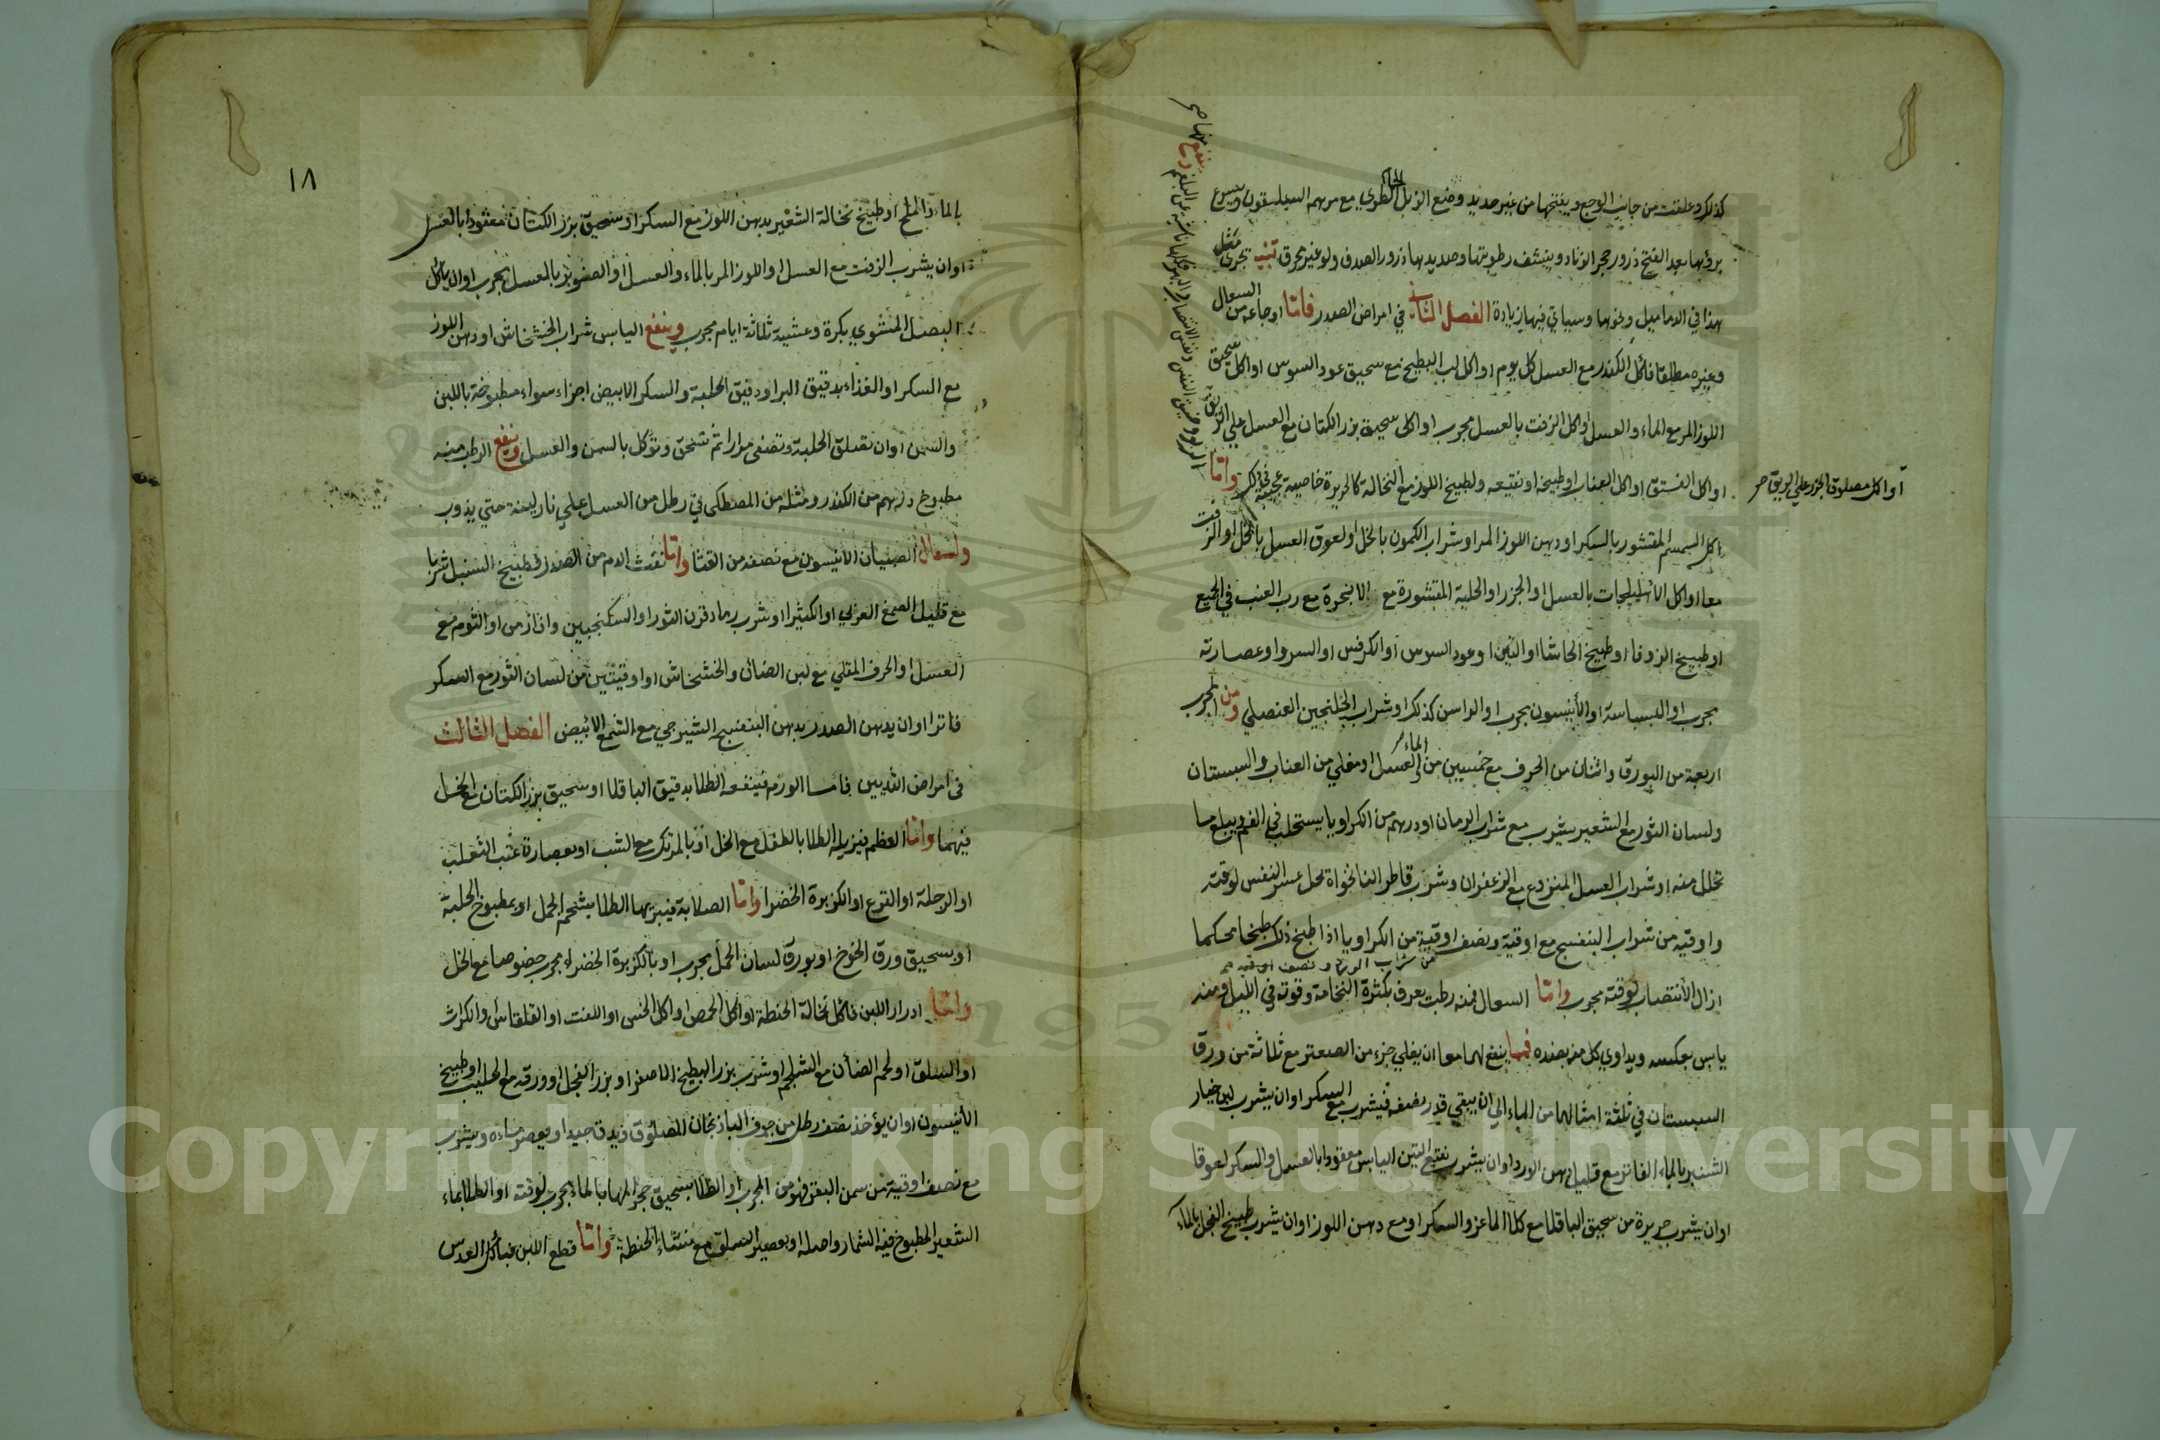 كذلك وعلقت من جانب الوجع ويفتحها من غير حديد وضع الزبل الطري مع مرهم السيلسقون ويسرع
برؤها بعد الفتح ذرور حجر الزناد وينشف رطوبتها وصديدها ذرور الصدف ولو غير محرق تنبيه تجري مثل
هذا في الدماميل ونحوها وسياتي فيها زيادة الفصل الثاني في امراض الصدر فاما اوجاعه من السعال
وغيره مطلقا فاكل الكندر مع العسل كل يوم او اكل لب البطيخ مع سحيق عود السوس او اكل سحيق
اللوز المر مع الماء والعسل او اكل الزفت بالعسل مجرب او اكل سحيق بزر الكتان مع العسل علي الريق
او اكل الفستق او اكل العناب او طبيخه او نقيعه ولطبيخ اللوز مع النخالة كالحريرة خاصية عجيبة في ذلك واما
او اكل مصلوق الجزر علي الريق صح
الربو وضيق النفس ونفس الانتصاب
اكل السمسم المقشور بالسكر او دهن اللوز المر او شراب الكمون بالخل او لعوق العسل بالخل او الزفت
معا او اكل الاهليلجات بالعسل او الجزر او الحلبة المقشورة مع الانجرة مع رب العنب في الجميع
او طبيخ الزوفا او طبيخ الحاشا او التين او عود السوس او الكرفس او السرو او عصارته
مجرب او البسباسة او الأنيسون مجرب او الراسن كذلك او شراب الخلنجين العنصلي ومن المجرب
اربعة من البورق واثنان من الحرف مع خمسين من الماء والعسل او مغلي من العناب والسبستان
ولسان الثور مع الشعير يشرب مع شراب الرمان او درهم من الكراويا يستحلب في الفم ويبلع ما
تحلل منه او شراب العسل المنزوع مع الزعفران وشرب قاطر النانخواة يحل عسر النفس لوقته
واوقية من شراب البنفسج مع اوقية ونصف اوقية من الكراويا اذا طبخ ذلك طبخا محكما
من شراب الورد ونصف اوقية صح
ازال الأنتصاب لوقته مجرب واما السعال فمنه رطب يعرف بكثرة النخامة وقوته في الليل ومنه
يابس بعكسه ويداوي كل منه بضده فمما ينفع لهما معا ان يغلي جزء من الصعتر مع ثلاثة من ورق
السبستان في ثلثة امثالهما من الماء الي ان يبقي قدر نصفه فيشرب مع السكر او ان يشرب لبن خيار
الشنبر بالماء الفاتر مع قليل دهن الورد او ان يشرب نقيع التين اليابس معقودا بالعسل والسكر لعوقا
او ان يشرب حريرة من سحيق الباقلا مع كلا الماعز والسكر او مع دهن اللوز او ان يشرب طبيخ الفجل بالماء
١٨
بالماء والملح او طبيخ نخالة الشعير بدهن اللوز مع السكر او سحيق بزر الكتان معقودا بالعسل
او ان يشرب الزفت مع العسل او اللوز المر بالماء والعسل او الصنوبر بالعسل مجرب او ان ياكل
البصل المشوي بكرة وعشية ثلاثة ايام مجرب وينفع اليابس شراب الخشخاش او دهن اللوز
مع السكر او الغذاء بدقيق البر او دقيق الحلبة والسكر الابيض اجزاء سواء مطبوخة باللبن
والسمن او ان تصلق الحلبة وتصفى مرارا ثم تسحق وتؤكل بالسمن والعسل وينفع الرطب منه
مطبوخ درهم من الكندر ومثله من المصطكى في رطل من العسل علي نار لينة حتي يذوب
ولسعال الصبيان الانيسون مع نصفه من القثا واما نفث الدم من الصدر فطبيخ السنبل شربا
مع قليل الصمغ العربي او الكثيرا او شرب رماد قرن الثور او السكنجبين وان ازمن او الثوم مع
العسل او الحرف المقلي مع لبن الضان والخشخاش او اوقيتين من لسان الثور مع السكر
فاترا او ان يدهن الصدر بدهن البنفسج الشيرجي مع الشمع الابيض الفصل الثالث
في امراض الثديين فاما الورم فينفعه الطلا بدقيق الباقلا او سحيق بزر الكتان مع الخل
فيهما واما العظم فيزيله الطلا بالطفل مع الخل او بالمرتك مع الشب او بعصارة عنب الثعلب
او الرجلة او القرع او الكزبرة الخضرا واما الصلابة فيبريها الطلا بشحم الجمل او بمطبوخ الحلبة
او بسحيق ورق الخوخ او بورق لسان الحمل مجرب او بالكزبرة الخضراء مجرب خصوصا مع الخل
واما ادرار اللبن فاكل نخالة الحنطة او اكل الحمص او اكل الخس او اللفت او القلقاس والكراث
او السلق او لحم الضأن مع الشلجم او شرب بزر البطيخ الاصفر او بزر الفجل او ورقه مع الحليب او طبيخ
الأنيسون او ان يؤخذ نصف رطل من جوف الباذنجان المصلوق ويدق جيدا او يعصر ماءه ويشرب
مع نصف اوقية من سمن البقر فهو من المجرب او الطلا بسحيق حجر المها بالماء مجرب لوقته او الطلا بماء
الشعير المطبوخ فيه الشمار واصله او بعصير السلق مع نشاء الحنطة واما قطع اللبن فبأكل العدس